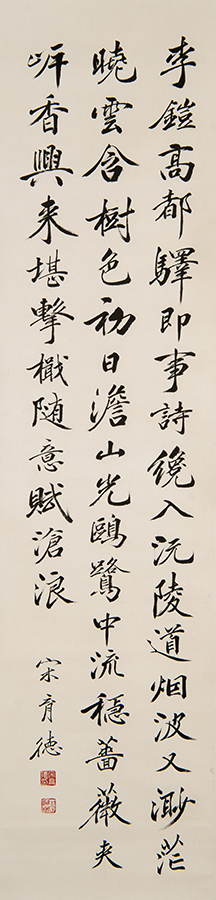 李鎧高都驛即事詩纔入沅陵道烟波又渺茫
曉雲含樹色初日澹山光鷗鷺中流穩薔薇夾
岸香興来堪擊檝随意賦滄浪
宋育德